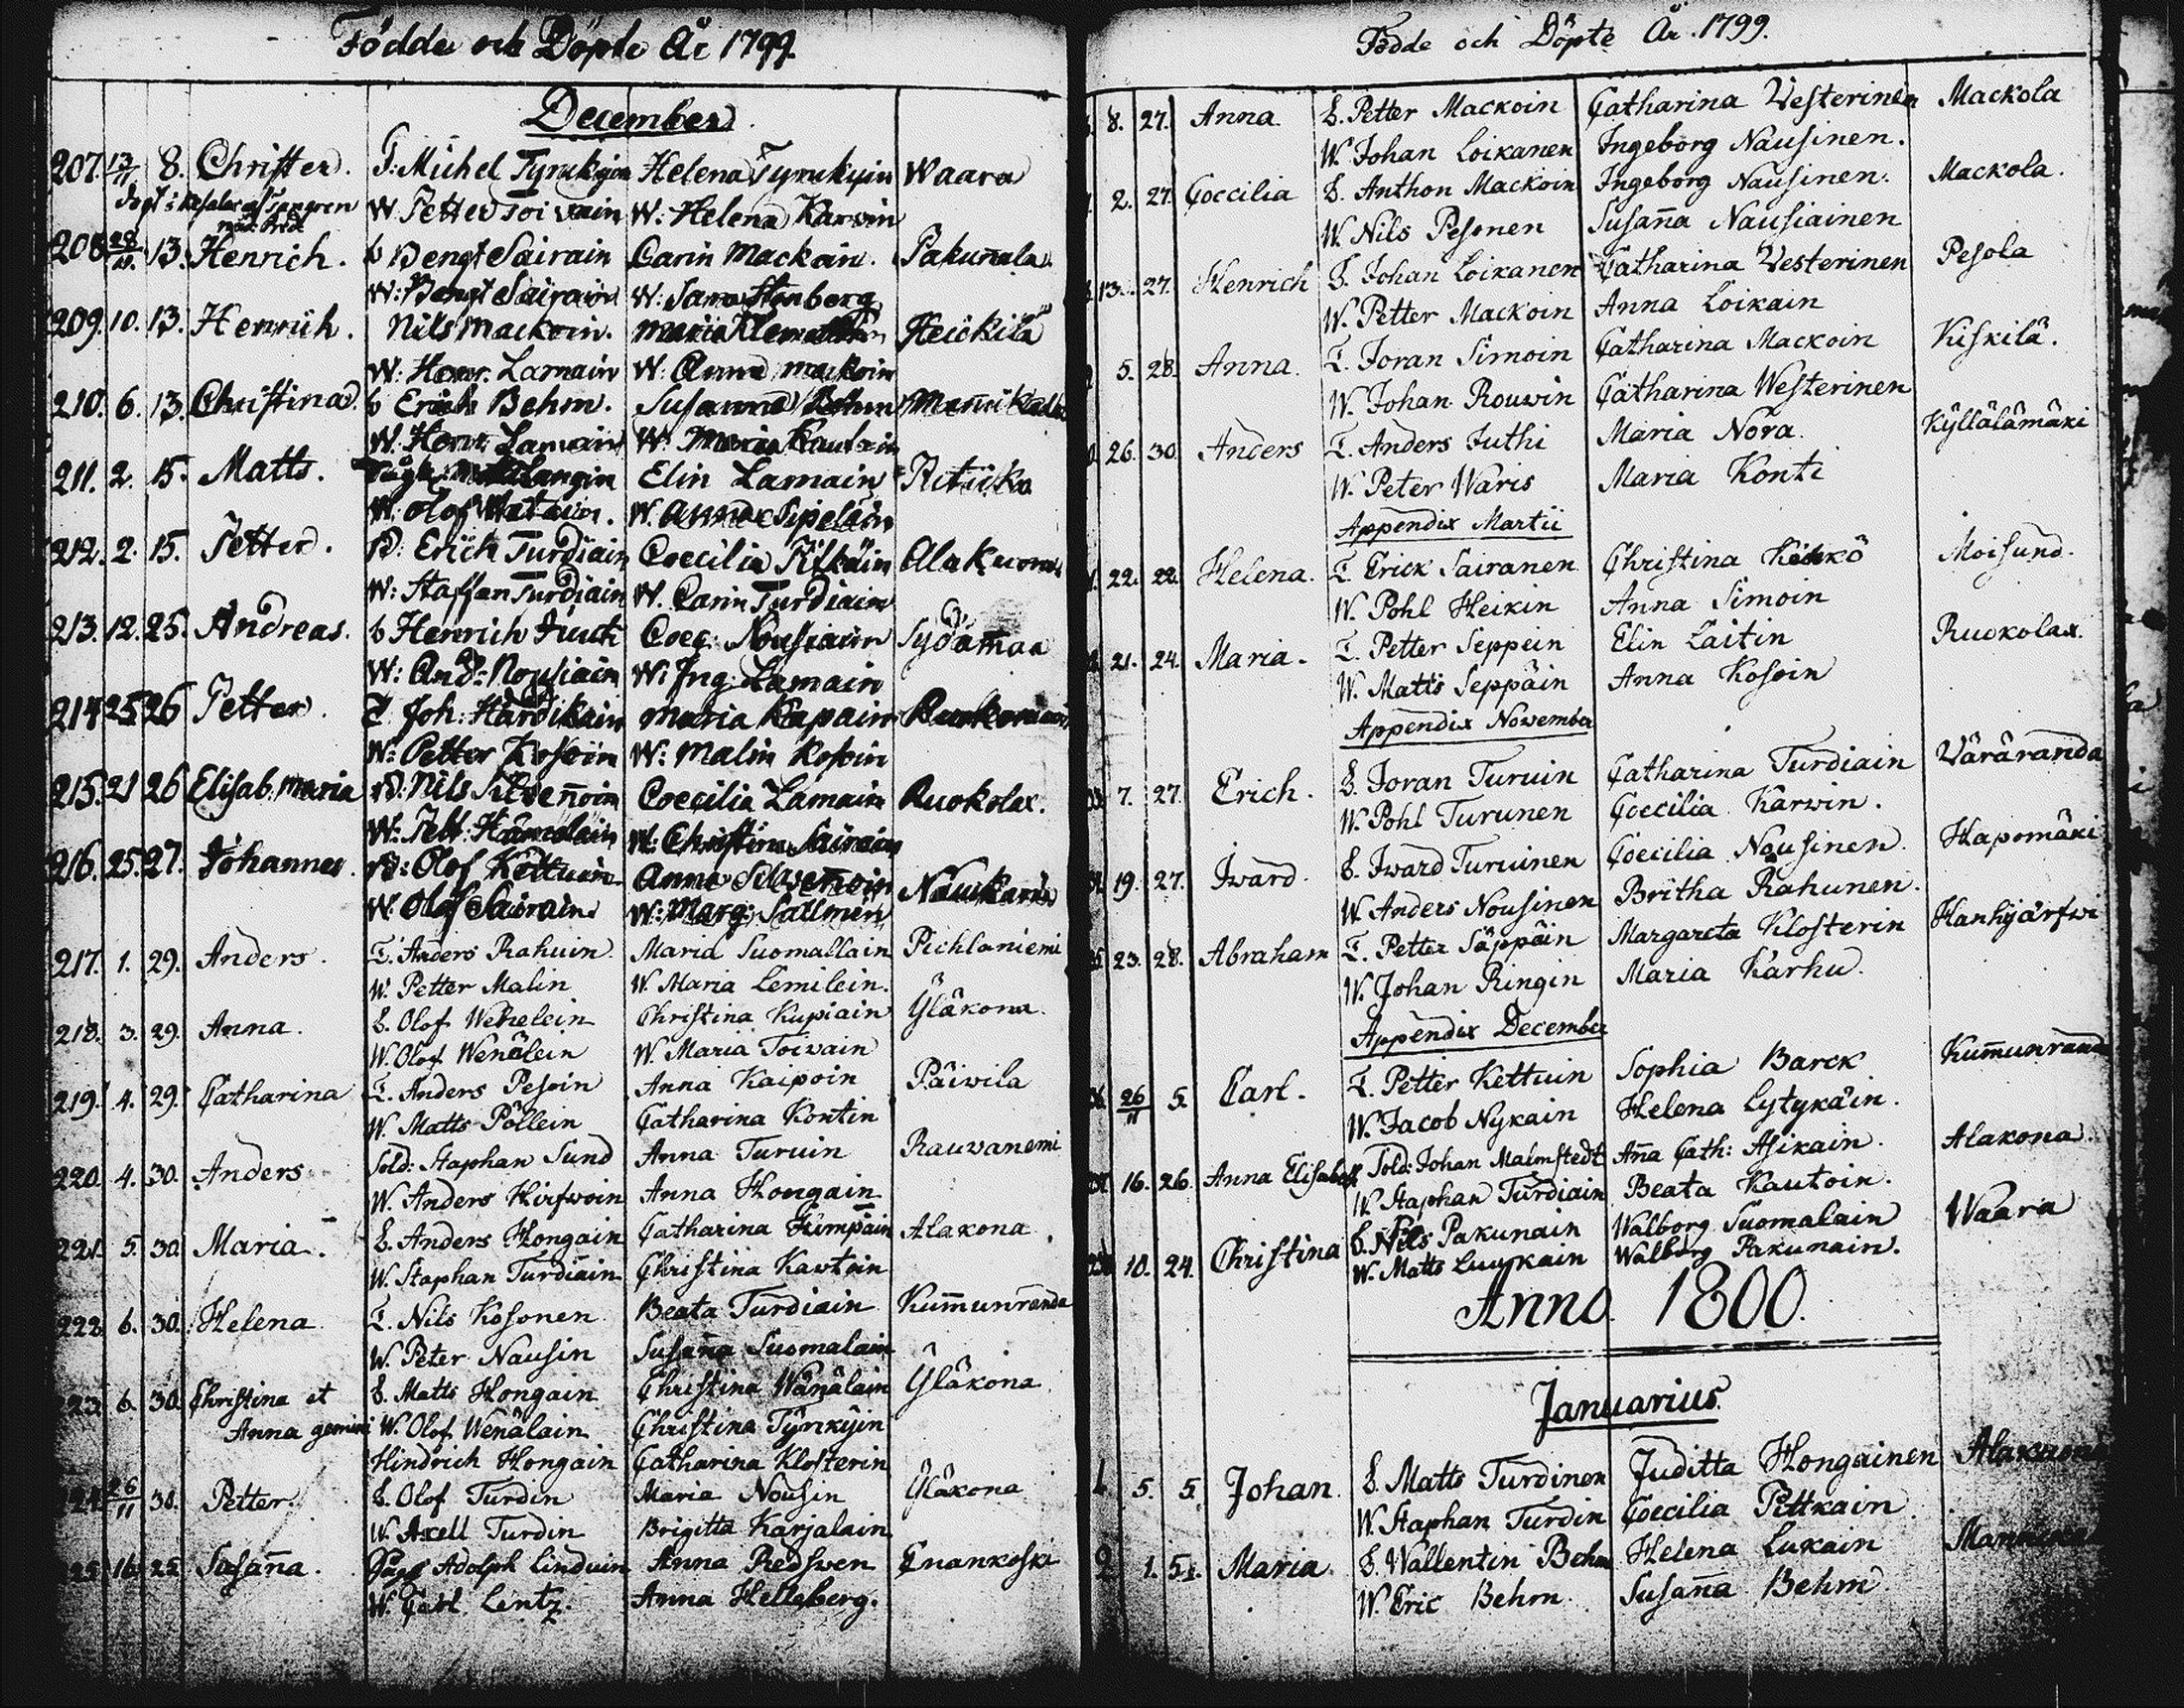 Födde och Döpte År 1799.
December
207. 13/11 8. Christer. T: Michel Tyrukyin Helena Tyrukyin Waara
W Petter Toivain W: Helena Karvin
208 13. Henrich. b Bengt Sairain Carin Mackoin. Pakunala
W: Bengt Sairain W: Sara Stenberg
209. 10. 13. Henrich. Nils Mackoin. Maria Heickilä
W: Henr. Lamain W: Anna Mackoin
210. 6. 13. Christina. b Erich Behm. Susanna Behm
W. Henr. Lamain W: Maria Kautoin
211. 2. 15. Matts. Elin Lamain
W: Olof W. Anna Sipeläin
212. 2. 15. Petter. Erich Turdiain Coecilia Pitkäin Alakuona
W: Staffan Turdiain W. Carin Turdiain
213. 12. 25. Andreas. b Henrich Juuti Coec: Nousiain Sydämaa
W: And: Nousiain W: Ing: Lamain
214 25 26 Petter. T. Joh: Hardikain Maria Kapain
W: Petter Kosoin W: Malin Kosoin
215. 21 26 Elisab. Maria Nils Silvenoin Coecilia Lamain Ruokolax.
W: Pett: Hämeläin W: Christina Sairain
216. 25. 27. Johannes. Olof Kettuin Anna Silvenoin
W: Olof Sairain W: Marg: Sallmén
217. 1. 29. Anders. T. Anders Rahuin. Maria Suomallain Pichlaniemi
W. Petter Malin W. Maria Lemilein.
218. 3. 29. Anna. b. Olof Wenelein Christina Kupiain Yläkona.
W. Olof Wenälein W. Maria Toivain
219. 4. 29. Catharina T. Anders Pesoin Anna Kaipoin Päivila
W. Matts Pöllein Catharina Kontin
220. 4. 30. Anders Sold: Staphan Sund Anna Turuin Rauvanemi
W. Anders Hirfwoin Anna Hongain
221. 5. 30. Maria. b. Anders Hongain Catharina Kumpäin Alakona
W. Staphan Turdiain Christina Kautoin
222. 6. 30. Helena T. Nils Kosonen Beata Turdiain Kum̄unranda
W. Peter Nausin Susan̄a Suomalain
223 6. 30. Christina et b. Matts Hongain Christina Wänälain Yläkona
Anna gemini W. Olof Wenälain Christina Tyrkyin
Hindrich Hongain Catharina Klosterin
224 26/11 30. Petter. b. Olof Turdin Maria Nousin Yläkona
W. Axell Turdin Brigitta Karjalain
225 16 25 Susan̄a. Adolph Linduin Anna Redswen Enankoski
W. Carl Lentz. Anna Hellsberg.
Födde och Döpte År 1799.
8. 27. Anna b. Petter Mackoin Catharina Vesterinen Mackola
W. Johan Loikanen Ingeborg Nausinen.
2. 27. Coecilia b. Anthon Mackoin Ingeborg Nausinen. Mackola.
W. Nils Pesonen Susan̄a Nausiainen
13. 27. Henrich b. Johan Loikanen Catharina Vesterinen Pesola
W. Petter Mackoin Anna Loikain
5. 28. Anna. T. Joran Simoin Catharina Mackoin Kiskilä.
W. Johan Rouwin Catharina Westerinen
26. 30. Anders T. Anders Juthi Maria Nora. Kyllälämäki
W. Peter Waris Maria Konti
Appendix Martii
22. 22. Helena. T. Erick Sairanen Christina Moisund.
W. Pohl Heikin Anna Simoin
21. 24. Maria. T. Petter Seppein Elin Laitin Ruokolax.
W. Matts Seppäin Anna Kosoin
Appendix November
7. 27. Erich. b. Joran Turuin Catharina Turdiain Väräranda
W. Pohl Turunen Coecilia Karwin.
19. 27. Iward. b. Iward Turuinen Coecilia Nousinen. Hapomäki
W. Anders Nousinen Britha Rahunen.
23. 28. Abraham T. Petter Säppäin Margareta Klosterin Hanhijärfwi
W. Johan Ringin Maria Karhu.
Appendix December
26/11 5. Carl. T. Petter Kettuin Sophia Barck Kum̄unrand
W. Jacob Nykain Helena Lytykäin.
16. 26. Anna Elisabeth Sold: Johan Malmstedt An̄a Cath: Asikain. Alakona.
W. Staphan Turdiain Beata Kautoin.
10. 24. Christina b. Nils Pakunain Walborg Suomalain Waara
W. Matts Luukain Walborg Pakunain.
Anno 1800.
Januarius
1. 5. 5. Johan. b. Matts Turdinen Juditta Hongainen Alakuona
W. Staphan Turdin Coecilia Pittkain
2 1. 5. Maria. b. Wallentin Behm Helena Lukain
W. Eric Behm. Susan̄a Behm